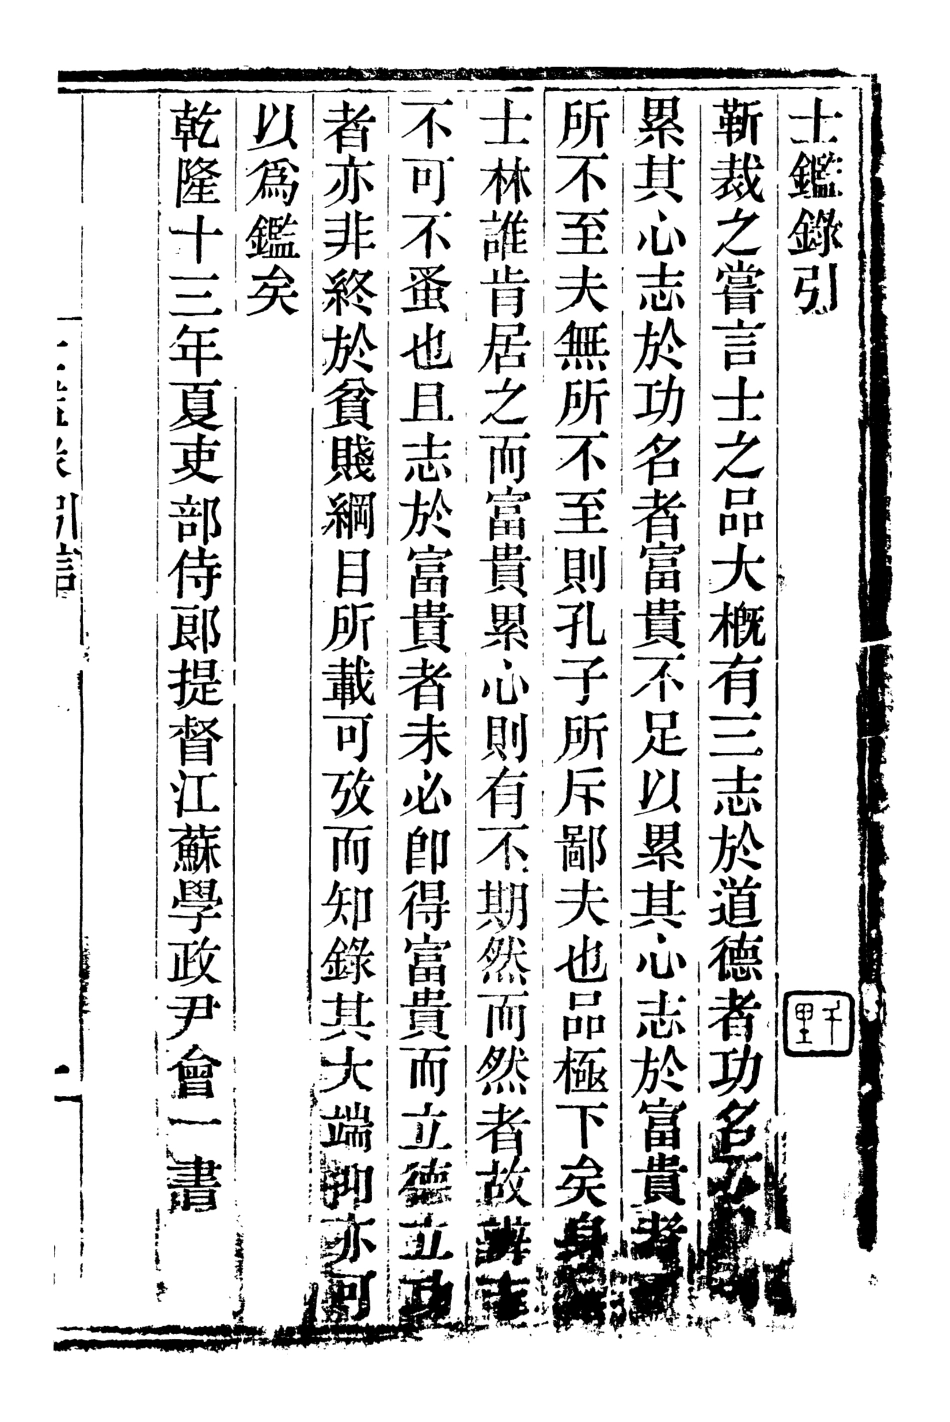 士鑑錄引
靳裁之嘗言士之品大槪有三志於道德者功名
累其心志於功名者富貴不足以累其心志於富貴者
所不至夫無所不至則孔子所斥鄙夫也品極下矣身
士林誰肯居之而富貴累心則有不期然而然者故辨志
不可不蚤也且志於富貴者未必卽得富貴而立德立功
者亦非終於貧賤綱目所載可攷而知錄其大端抑亦可
以爲鑑矣
乾隆十三年夏吏部侍郞提督江蘇學政尹會一書
士鑑錄 引言
一
千里